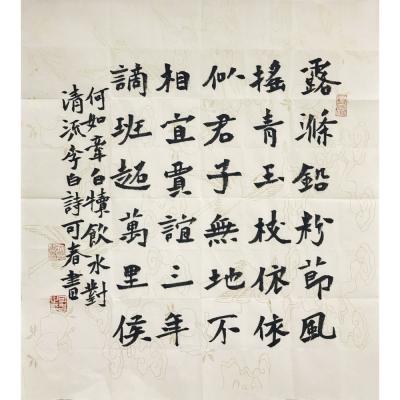 露滌鉛粉節風
搖青玉枝依依
似君子無地不
相宜賈誼三年
謫班超萬里侯
何如牽白犢飲水對
清流李白詩可春書